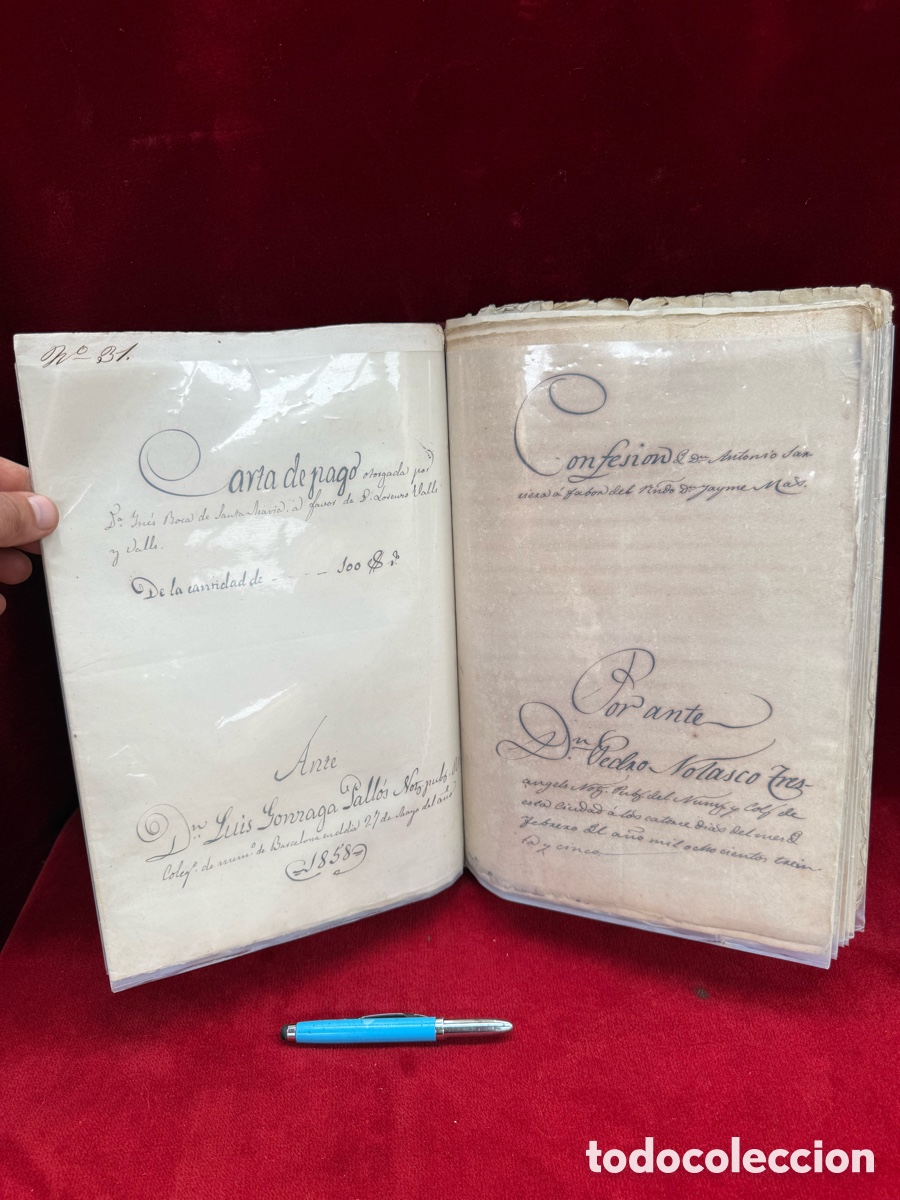 Nº 31.
Carta de pago otorgada por
Dª. Inés Roca de Santa Maria, á favor de D. Lorenzo Valls
y Valls.
De la cantidad de - - - - 100
Ante
Dn. Luis Gonzaga Pallós Notº. pubº.
Colegº. de numº. de Barcelona en dia 27 de Mayo del año
1858
Confesion de dn. Antonio
á fabor del Rndo. dn. Jayme Mas.
Por ante
Dn. Pedro Nolasco Tres-
angels Notº. Pubº. del Numº. y Colº. de
esta Ciudad á los catorce dias del mes de
febrero del año mil ochocientos trein
ta y cinco
todocoleccion